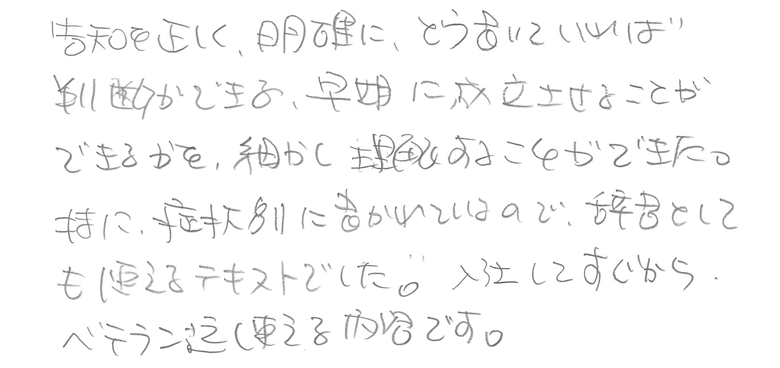 告知を正しく、明確に、どう書いていれば
判断ができる、早期に成立させることが
できるかを、細かく理解することができた。
特に、症状別に書かれているので、辞書として
も使えるテキストでした。入社してすぐから、
ベテラン迄使える内容です。